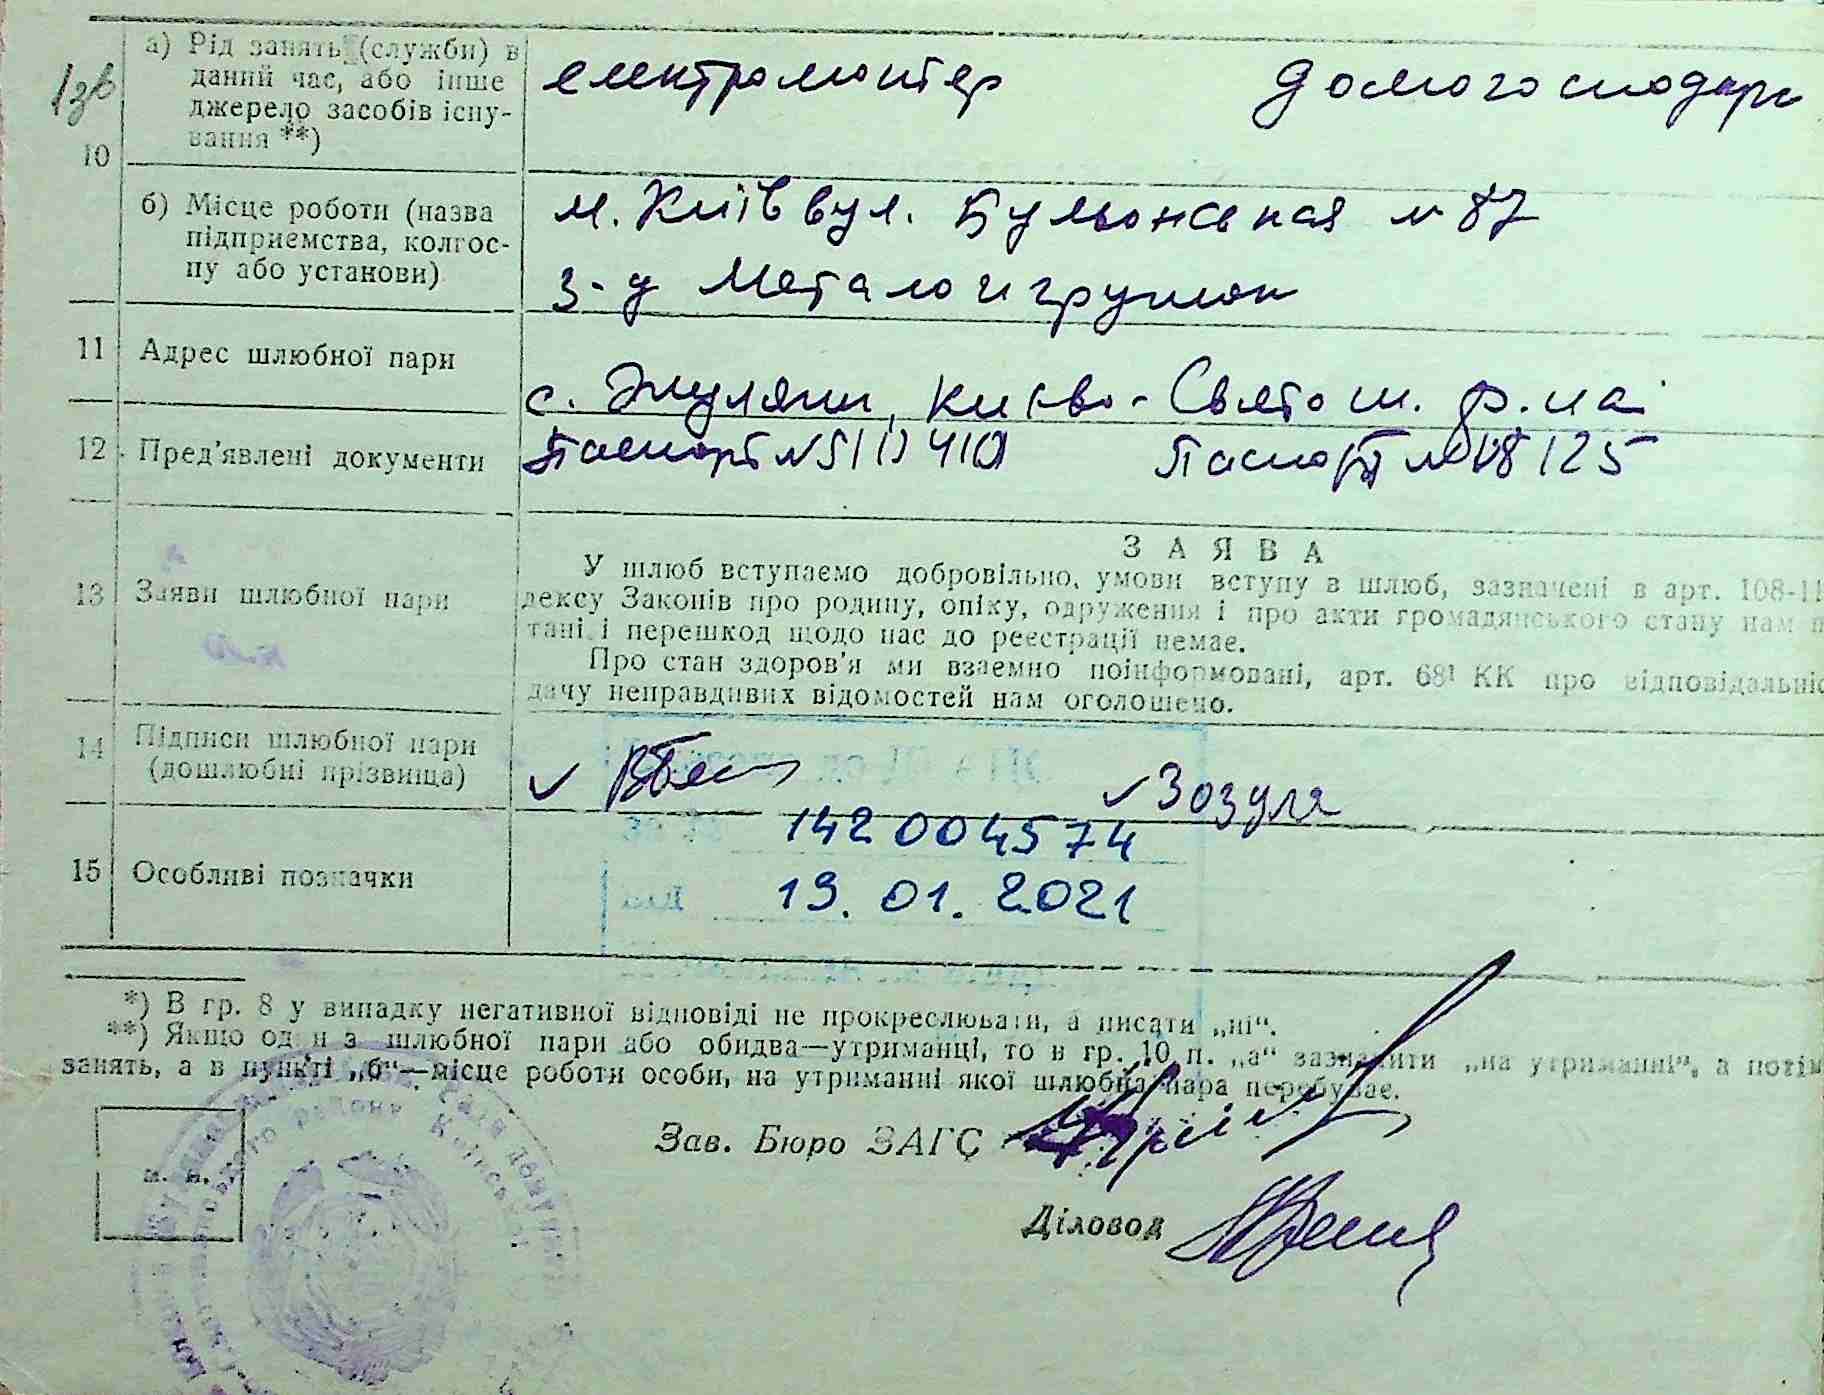 13в
10
а) Рід занять (служби) в
даний час, або інше
джерело засобів існу-
вання **)
електромонтер домогосподарк
б) Місце роботи (назва
підприємства, колгос-
пу або установи)
м. Київ вул. № 87
з-д Металоигрушок
11 Адрес шлюбної пари
с. Жуляни, Києво-Святош. р-на
12 Пред'явлені документи
Паспорт № Паспорт №
13 Заяви шлюбної пари
ЗАЯВА
У шлюб вступаємо добровільно, умови вступу в шлюб, зазначені в арт. 108-11
дексу Законів про родину, опіку, одруження і про акти громадянського стану нам п
тані і перешкод щодо нас до реєстрації немає.
Про стан здоров'я ми взаємно поінформовані, арт. 68¹ КК про відповідальніс
дачу неправдивих відомостей нам оголошено.
14 Підписи шлюбної пари
(дошлюбні прізвища)
Зозуля
142004574
15 Особливі позначки
19.01.2021
*) В гр. 8 у випадку негативної відповіді не прокреслювати, а писати „ні“.
**) Якщо один з шлюбної пари або обидва—утриманці, то в гр. 10 п. „а“ зазначити „на утриманні“, а потім
занять, а в пункті „б“—місце роботи особи, на утриманні якої шлюбна пара перебуває.
Зав. Бюро ЗАГС
м. п.
Діловод